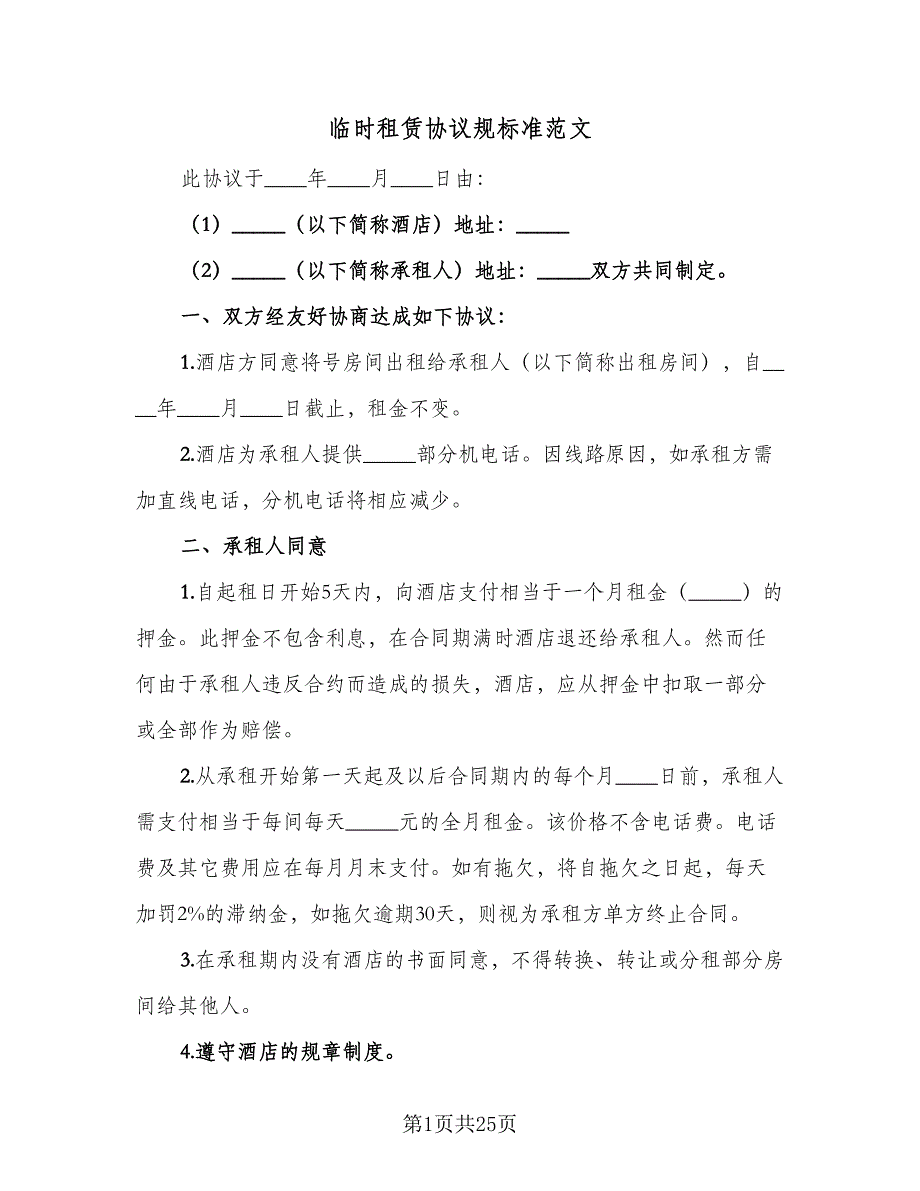 临时租赁协议规标准范文
此协议于____年____月____日由：
（1）_____（以下简称酒店）地址：_____
（2）_____（以下简称承租人）地址：_____双方共同制定。
一、双方经友好协商达成如下协议：
1.酒店方同意将号房间出租给承租人（以下简称出租房间），自__
__年____月____日截止，租金不变。
2.酒店为承租人提供_____部分机电话。因线路原因，如承租方需
加直线电话，分机电话将相应减少。
二、承租人同意
1.自起租日开始5天内，向酒店支付相当于一个月租金（_____）的
押金。此押金不包含利息，在合同期满时酒店退还给承租人。然而任
何由于承租人违反合约而造成的损失，酒店，应从押金中扣取一部分
或全部作为赔偿。
2.从承租开始第一天起及以后合同期内的每个月____日前，承租人
需支付相当于每间每天_____元的全月租金。该价格不含电话费。电话
费及其它费用应在每月月末支付。如有拖欠，将自拖欠之日起，每天
加罚2%的滞纳金，如拖欠逾期30天，则视为承租方单方终止合同。
3.在承租期内没有酒店的书面同意，不得转换、转让或分租部分房
间给其他人。
4.遵守酒店的规章制度。
第1页共25页